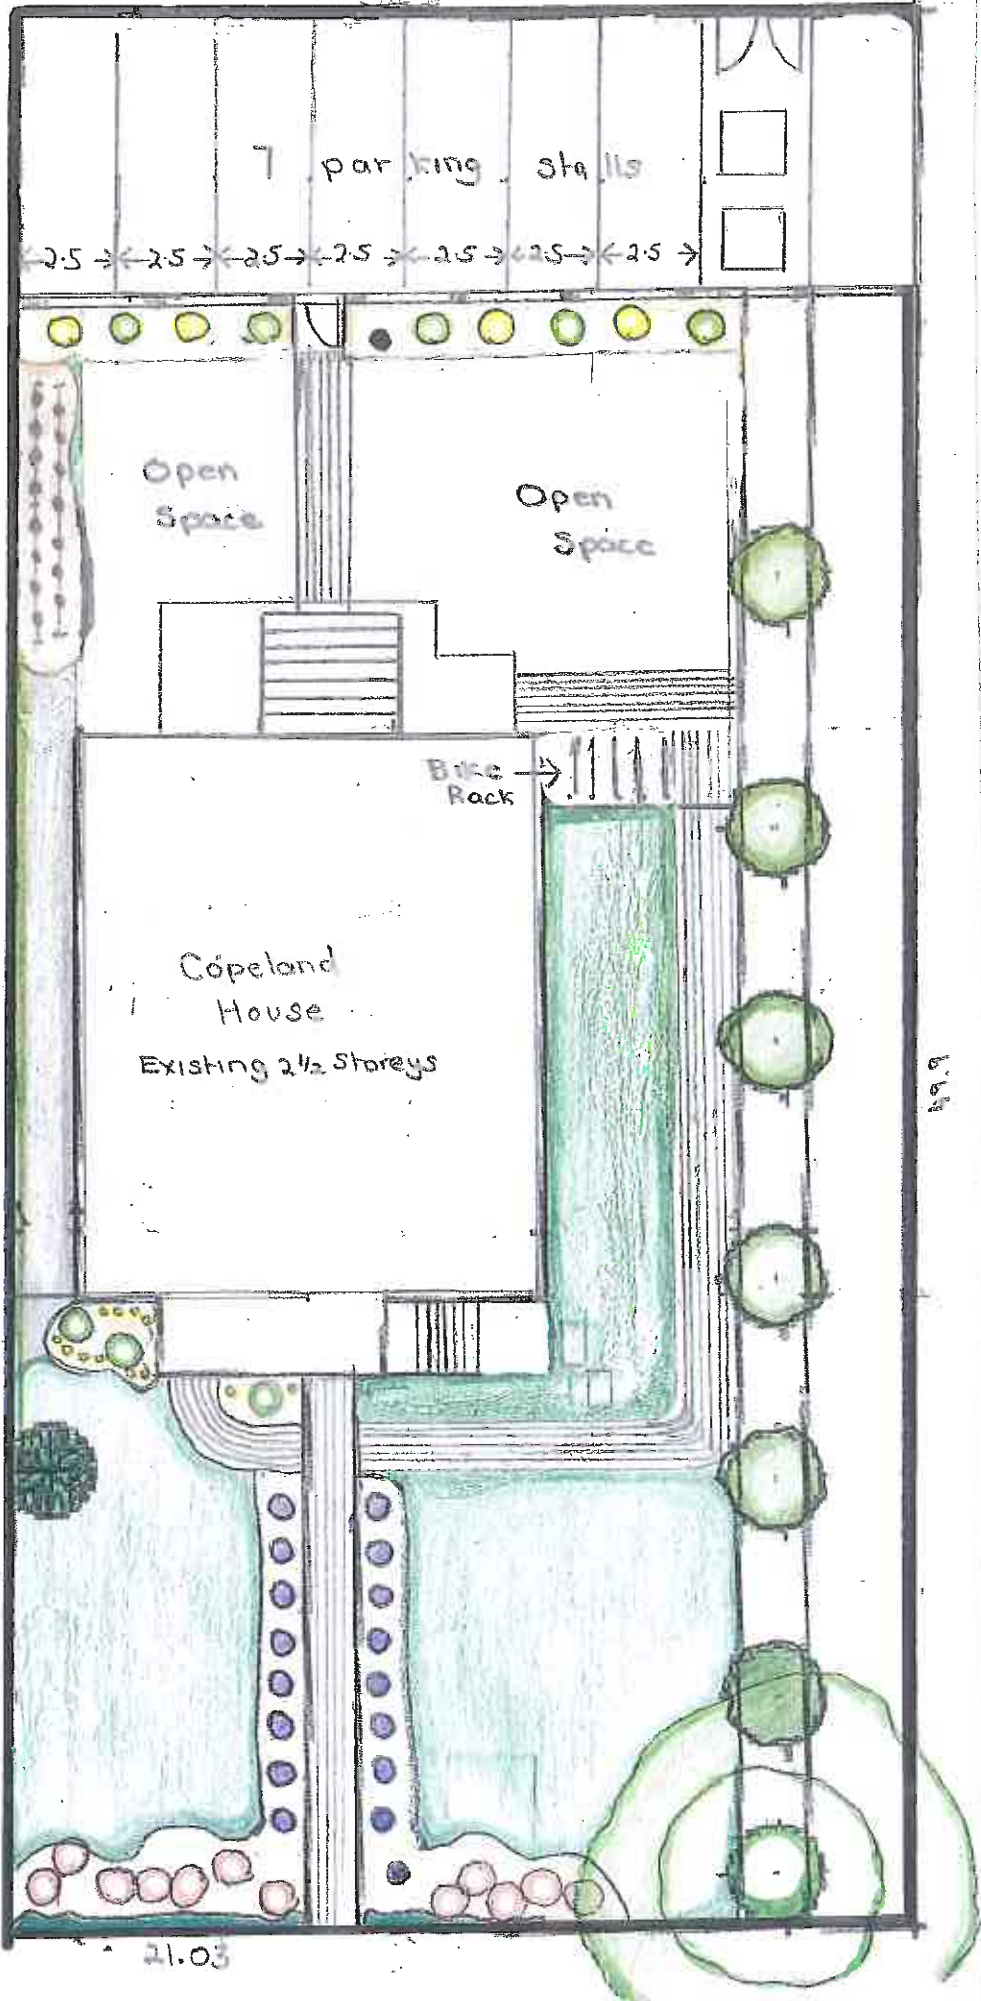 7 parking stalls
2.5 2.5 2.5 2.5 2.5 2.5 2.5
Open
Space
Open
Space
Bike
Rack
Copeland
House
Existing 2½ Storeys
49.9
21.03